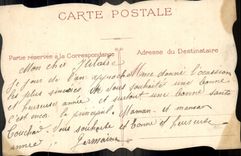 CARTE POSTALE
Partie réservée à la Correspondance Adresse du Destinataire
Mon cher
Le jour de l'an approche donne l'occasion
les plus sincères souhaite une bonne
et heureuse année et surtout une bonne santé
c'est le principal. Maman et
vous souhaite et bonne et heureuse
année. Germaine